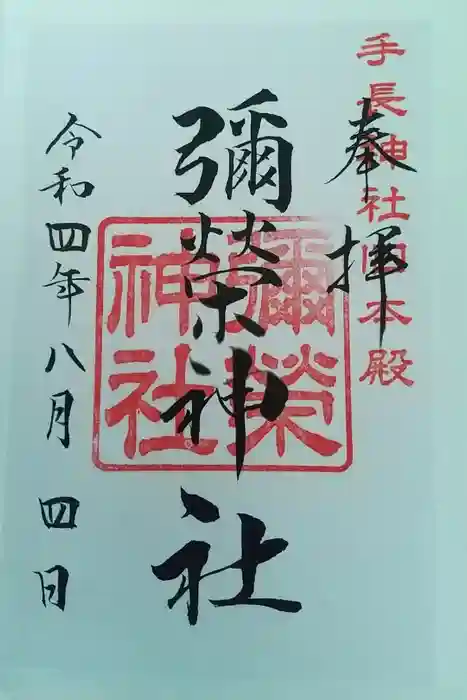 手長神社本殿
奉拝
彌榮神社
彌榮
神社
令和四年八月四日